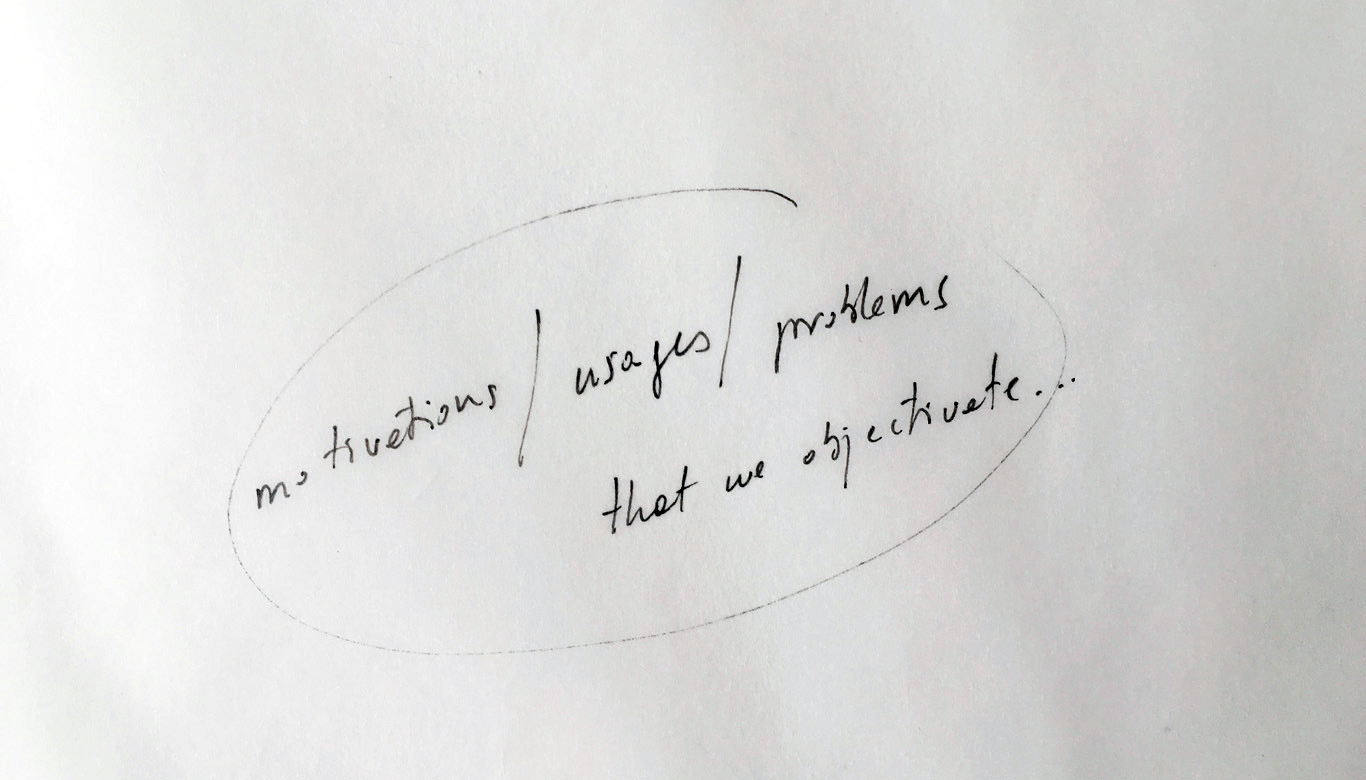 motivations / usages / problems
that we objectivate...